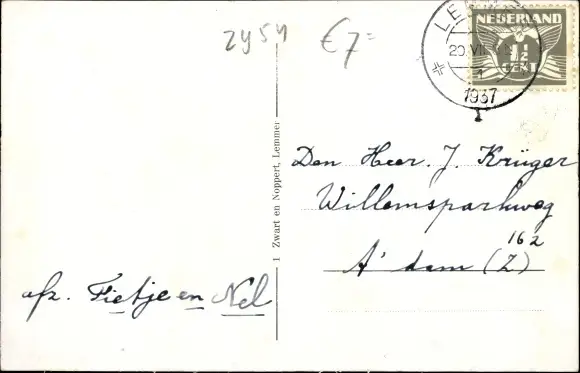 2454
€7=
LE
NEDERLAND
1½
CENT
20.VII
1
1937
1 Zwart en Noppert, Lemmer
Den Heer. J. Krüger
Willemsparkweg
162
A'dam (Z)
afz. Fietje en Nel